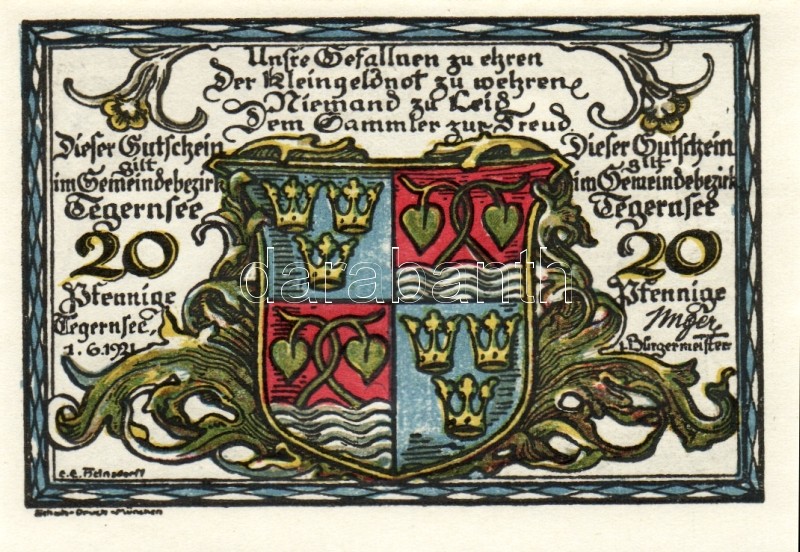 Unsre Gefallnen zu ehren
Der Kleingeldnot zu wehren
Niemand zu Leid
Dem Sammler zur Freud.
Dieser Gutschein
gilt
im Gemeindebezirk
Tegernsee
20
Pfennige
Tegernsee,
1.6.1921
Dieser Gutschein
gilt
im Gemeindebezirk
Tegernsee
20
Pfennige
1. Bürgermeister
darabanth
Druck-München